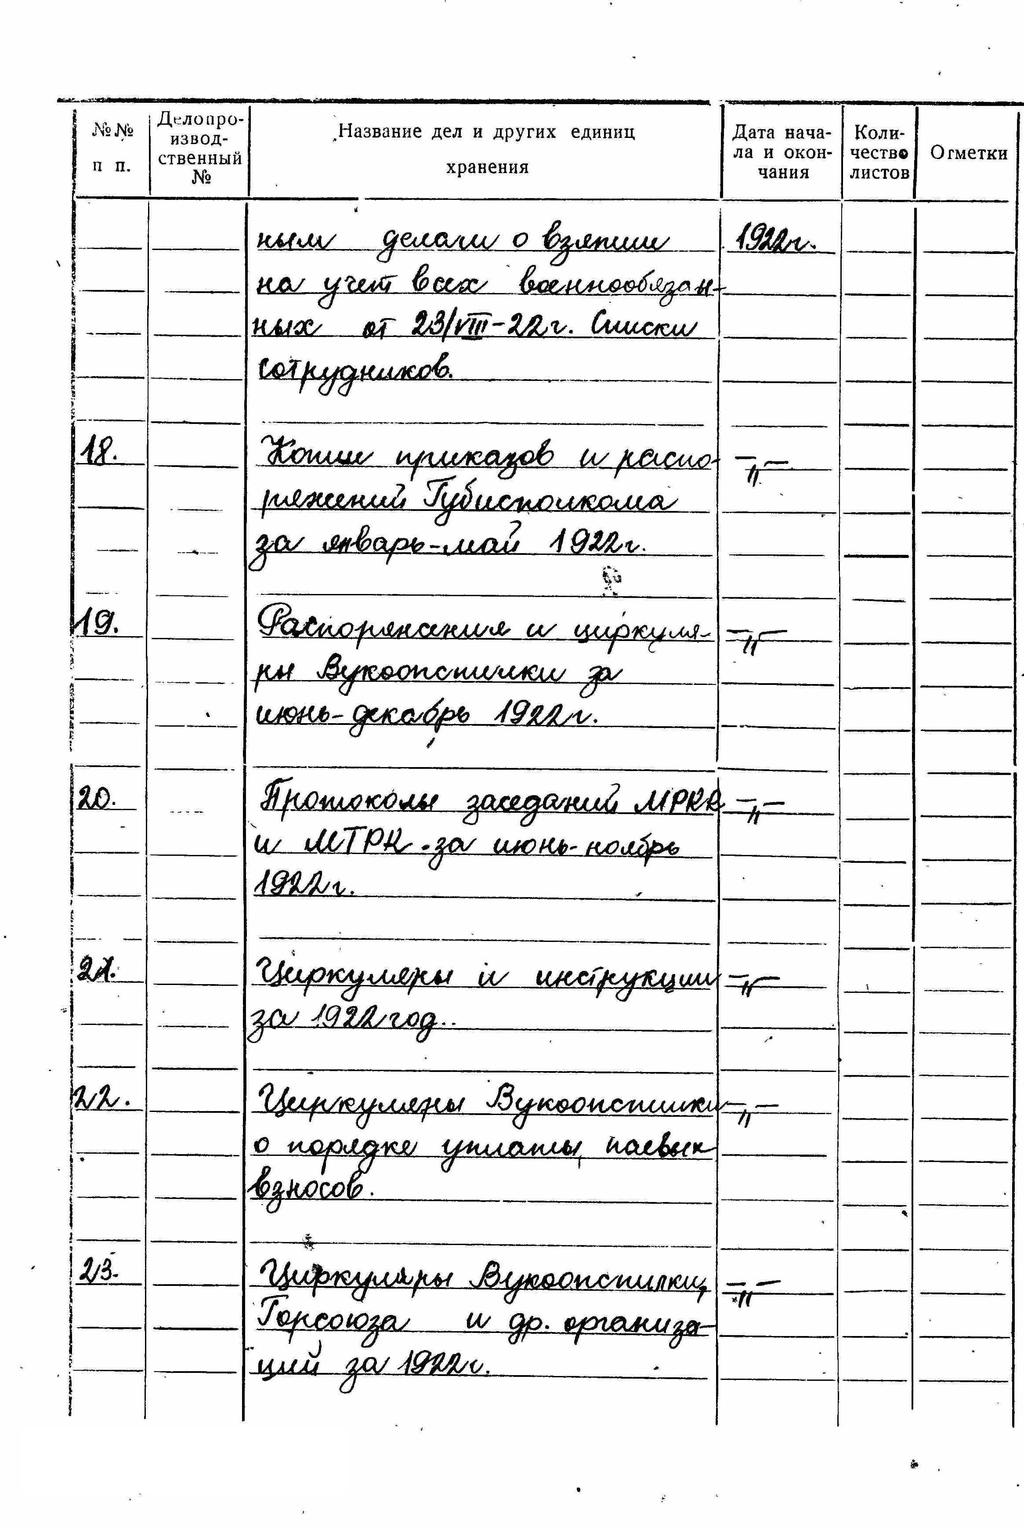 №№ п п.
Делопроизводственный №
Название дел и других единиц хранения
Дата начала и окончания
Количество листов
Отметки
ным делам о взятии 1922г.
на учет всех военнообязан-
ных от 23/VIII-22г. Списки
сотрудников.
18. Копии приказов и распо- —"—
ряжений Губисполкома
за январь-май 1922г.
19. Распоряжения и циркуля- —"—
ры Вукоопспилки за
июнь-декабрь 1922г.
20. Протоколы заседаний МРКК —"—
и МТРК за июнь-ноябрь
1922г.
21. Циркуляры и инструкции —"—
за 1922 год.
22. Циркуляры Вукоопспилки —"—
о порядке уплаты паевых
взносов.
23. Циркуляры Вукоопспилки, —"—
Горсоюза и др. организа-
ций за 1922г.